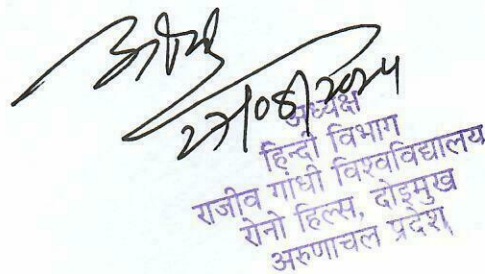 27/08/2024
अध्यक्ष
हिन्दी विभाग
राजीव गांधी विश्वविद्यालय
रोनो हिल्स, दोइमुख
अरुणाचल प्रदेश